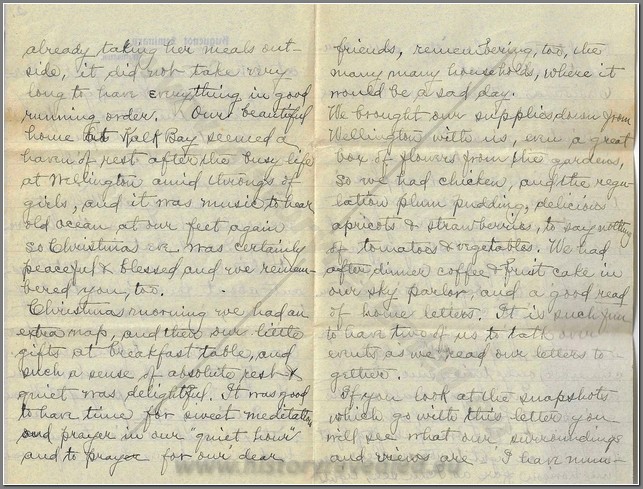 already taking her meals out-
side, it did not take very
long to have everything in good
running order. Our beautiful
home at Kalk Bay seemed a
haven of rest after the busy life
at Wellington amid throngs of
girls, and it was music to hear
old ocean at our feet again
So Christmas eve was certainly
peaceful & blessed and we remem-
bered you, too.
Christmas morning we had an
extra nap, and then our little
gifts at breakfast table, and
such a sense of absolute rest &
quiet was delightful. It was good
to have time for sweet meditation
and prayer in our "quiet hour"
and to pray for our dear
friends, remembering, too, the
many many households, where it
would be a sad day.
We brought our supplies down from
Wellington with us, even a great
box of flowers from the gardens,
so we had chicken, and the regu-
lation plum pudding, delicious
apricots & strawberries, to say nothing
of tomatoes & vegetables. We had
after dinner coffee & fruit cake in
our sky parlor, and a good read
of home letters. It is such fun
to have two of us to talk over
events as we read our letters to-
gether.
If you look at the snapshots
which go with this letter you
will see what our surroundings
and views are I have num-
Huguenot Seminary